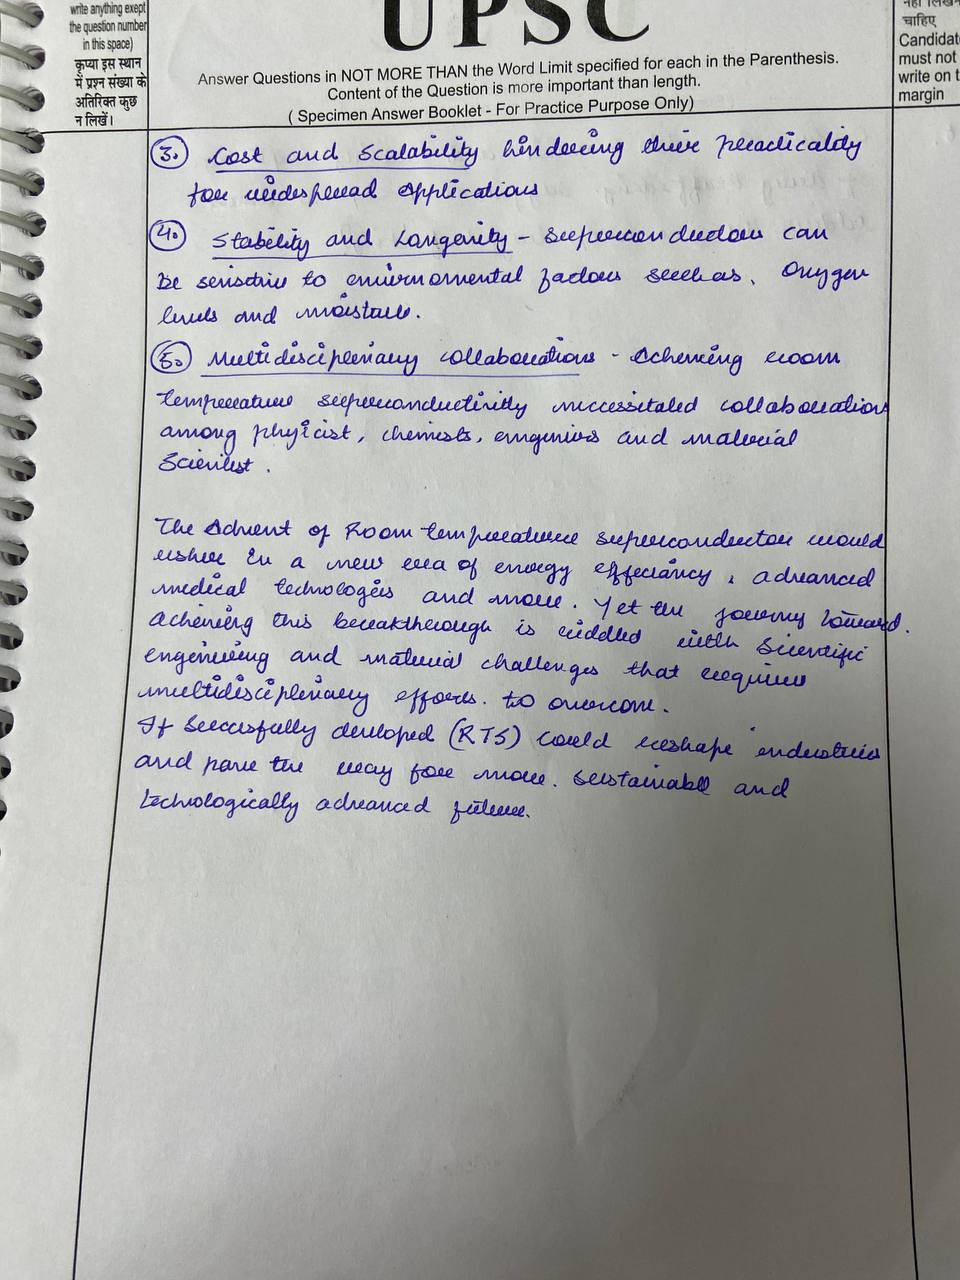 write anything exept
the question number
in this space)
कृप्या इस स्थान
में प्रश्न संख्या के
अतिरिक्त कुछ
न लिखें।
UPSC
Answer Questions in NOT MORE THAN the Word Limit specified for each in the Parenthesis.
Content of the Question is more important than length.
( Specimen Answer Booklet - For Practice Purpose Only)
चाहिए
Candidat
must not
write on t
margin
3. Cost and Scalability hindering their practicality
for widespread applications
4. Stability and Longevity - Superconductors can
be sensitive to environmental factors such as, Oxygen
levels and moisture.
5. Multidisciplinary collaborations - Achieving room
temperature superconductivity necessitated collaboration
among phyicist, chemists, engenires and material
Scientist.
The Advent of Room temperature superconductor would
usher In a new era of energy efficiancy, advanced
medical technologies and more. Yet the journy toward.
achieving this breakthrough is riddled with Scientific
engeniering and material challenges that require
multidisciplinary efforts. to overcome.
If Successfully developed (RTS) could reshape industries
and pave the way for more. sustainable and
technologically advanced future.